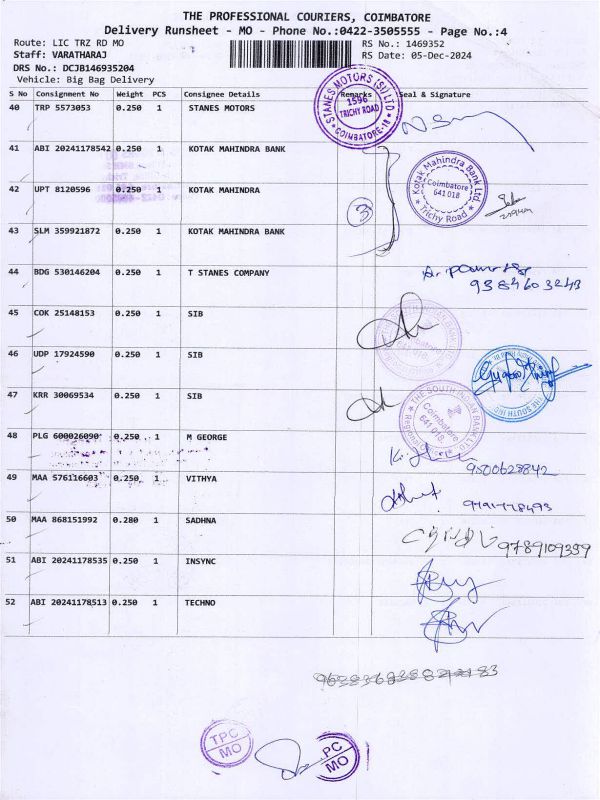 THE PROFESSIONAL COURIERS, COIMBATORE
Delivery Runsheet - MO - Phone No.:0422-3505555 - Page No.:4
Route: LIC TRZ RD MO RS No.: 1469352
Staff: VARATHARAJ RS Date: 05-Dec-2024
DRS No.: DCJB146935204
Vehicle: Big Bag Delivery
S No Consignment No Weight PCS Consignee Details Remarks Seal & Signature
40 TRP 5573053 0.250 1 STANES MOTORS
STANES MOTORS (SI) LTD
1596
TRICHY ROAD
COIMBATORE-18
41 ABI 20241178542 0.250 1 KOTAK MAHINDRA BANK
Kotak Mahindra Bank Ltd.
Coimbatore
641 018
Trichy Road
42 UPT 8120596 0.250 1 KOTAK MAHINDRA
3
43 SLM 359921872 0.250 1 KOTAK MAHINDRA BANK
44 BDG 530146204 0.250 1 T STANES COMPANY
9384603243
45 COK 25148153 0.250 1 SIB
46 UDP 17924590 0.250 1 SIB
47 KRR 30069534 0.250 1 SIB
THE SOUTH INDIAN BANK LTD
Coimbatore
641 018.
48 PLG 600026090 0.250 1 M GEORGE
9500628842
49 MAA 576116603 0.250 1 VITHYA
50 MAA 868151992 0.280 1 SADHNA
9789109399
51 ABI 20241178535 0.250 1 INSYNC
52 ABI 20241178513 0.250 1 TECHNO
TPC
MO
PC
MO